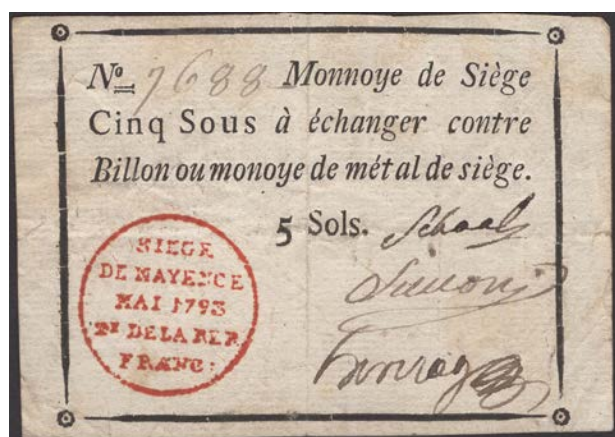 Nº 7688 Monnoye de Siège
Cinq Sous à échanger contre
Billon ou monoye de métal de siège.
5 Sols. Schaal
SIEGE
DE MAYENCE
MAI 1793
2ᴱ DE LA REP.
FRANC: